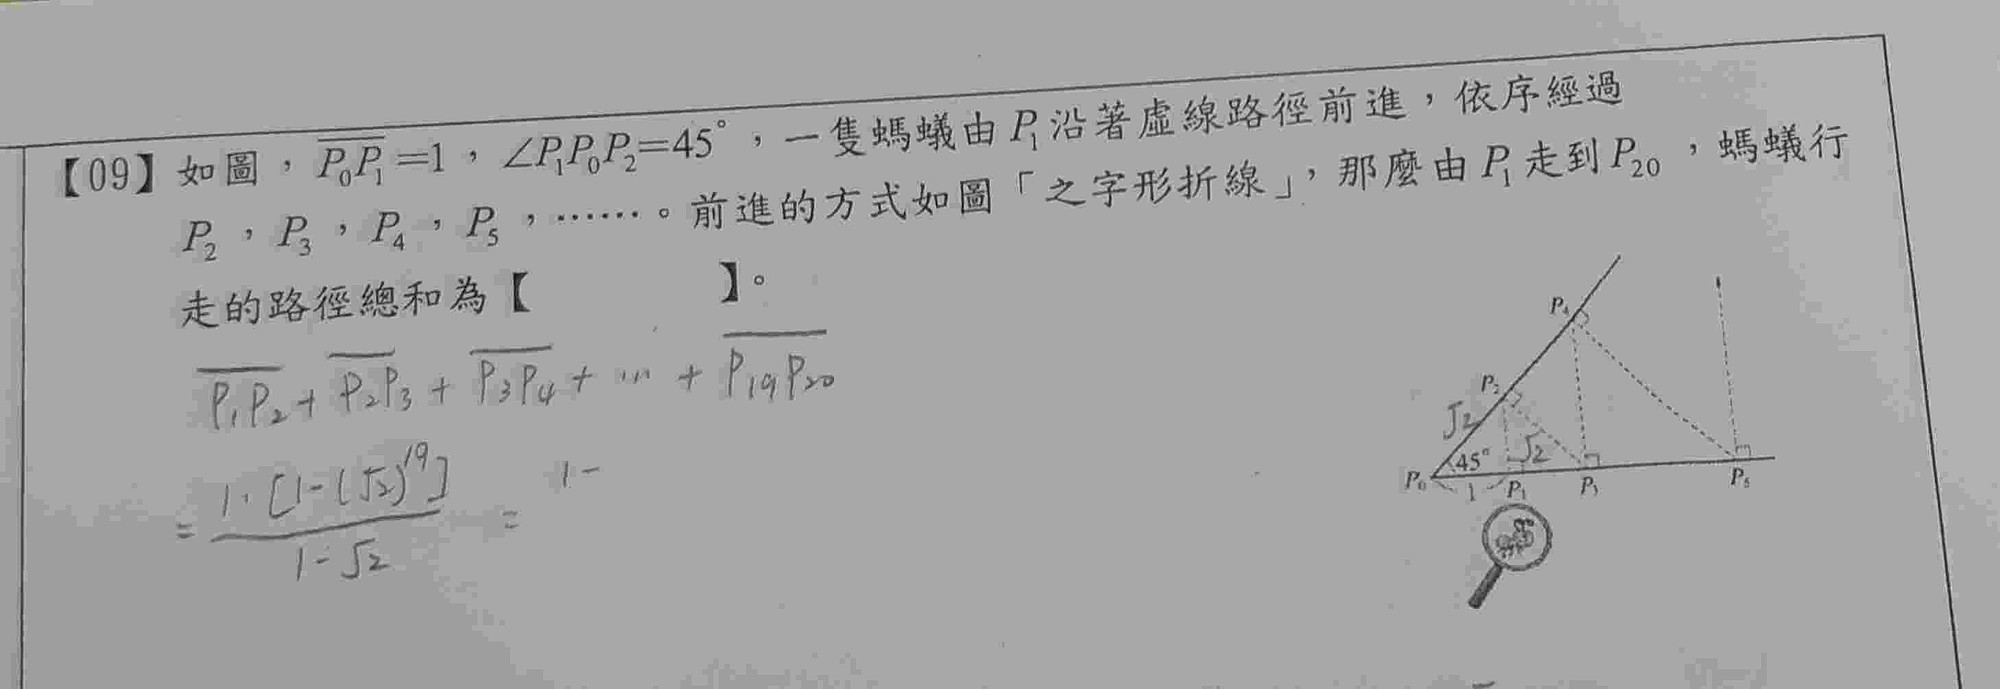 【09】如圖，P₀P₁=1，∠P₁P₀P₂=45°，一隻螞蟻由P₁沿著虛線路徑前進，依序經過
P₂，P₃，P₄，P₅，……。前進的方式如圖「之字形折線」，那麼由P₁走到P₂₀，螞蟻行
走的路徑總和為【 】。
P₁P₂ + P₂P₃ + P₃P₄ + … + P₁₉P₂₀
= 1·[1-(√2)¹⁹] / 1-√2 = 1-
P₄
P₂
√2
45° √2
P₀ 1 P₁ P₃ P₅